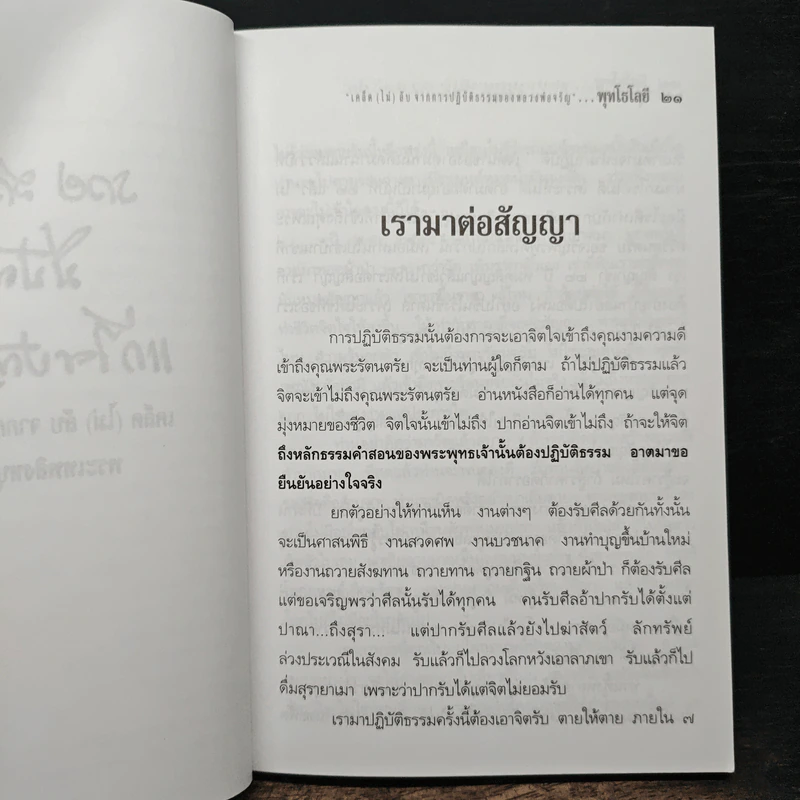 "เคล็ด (ไม่) ลับ จากการปฏิบัติธรรมของหลวงพ่อจรัญ" ... พุทโธโลยี ๒๑
เรามาต่อสัญญา
การปฏิบัติธรรมนั้นต้องการจะเอาจิตใจเข้าถึงคุณงามความดี
เข้าถึงคุณพระรัตนตรัย จะเป็นท่านผู้ใดก็ตาม ถ้าไม่ปฏิบัติธรรมแล้ว
จิตจะเข้าไม่ถึงคุณพระรัตนตรัย อ่านหนังสือก็อ่านได้ทุกคน แต่จุด
มุ่งหมายของชีวิต จิตใจนั้นเข้าไม่ถึง ปากอ่านจิตเข้าไม่ถึง ถ้าจะให้จิต
ถึงหลักธรรมคำสอนของพระพุทธเจ้านั้นต้องปฏิบัติธรรม อาตมาขอ
ยืนยันอย่างใจจริง
ยกตัวอย่างให้ท่านเห็น งานต่างๆ ต้องรับศีลด้วยกันทั้งนั้น
จะเป็นศาสนพิธี งานสวดศพ งานบวชนาค งานทำบุญขึ้นบ้านใหม่
หรืองานถวายสังฆทาน ถวายทาน ถวายกฐิน ถวายผ้าป่า ก็ต้องรับศีล
แต่ขอเจริญพรว่าศีลนั้นรับได้ทุกคน คนรับศีลอ้าปากรับได้ตั้งแต่
ปาณา...ถึงสุรา... แต่ปากรับศีลแล้วยังไปฆ่าสัตว์ ลักทรัพย์
ล่วงประเวณีในสังคม รับแล้วก็ไปลวงโลกหวังเอาลาภเขา รับแล้วก็ไป
ดื่มสุรายาเมา เพราะว่าปากรับได้แต่จิตไม่ยอมรับ
เรามาปฏิบัติธรรมครั้งนี้ต้องเอาจิตรับ ตายให้ตาย ภายใน ๗